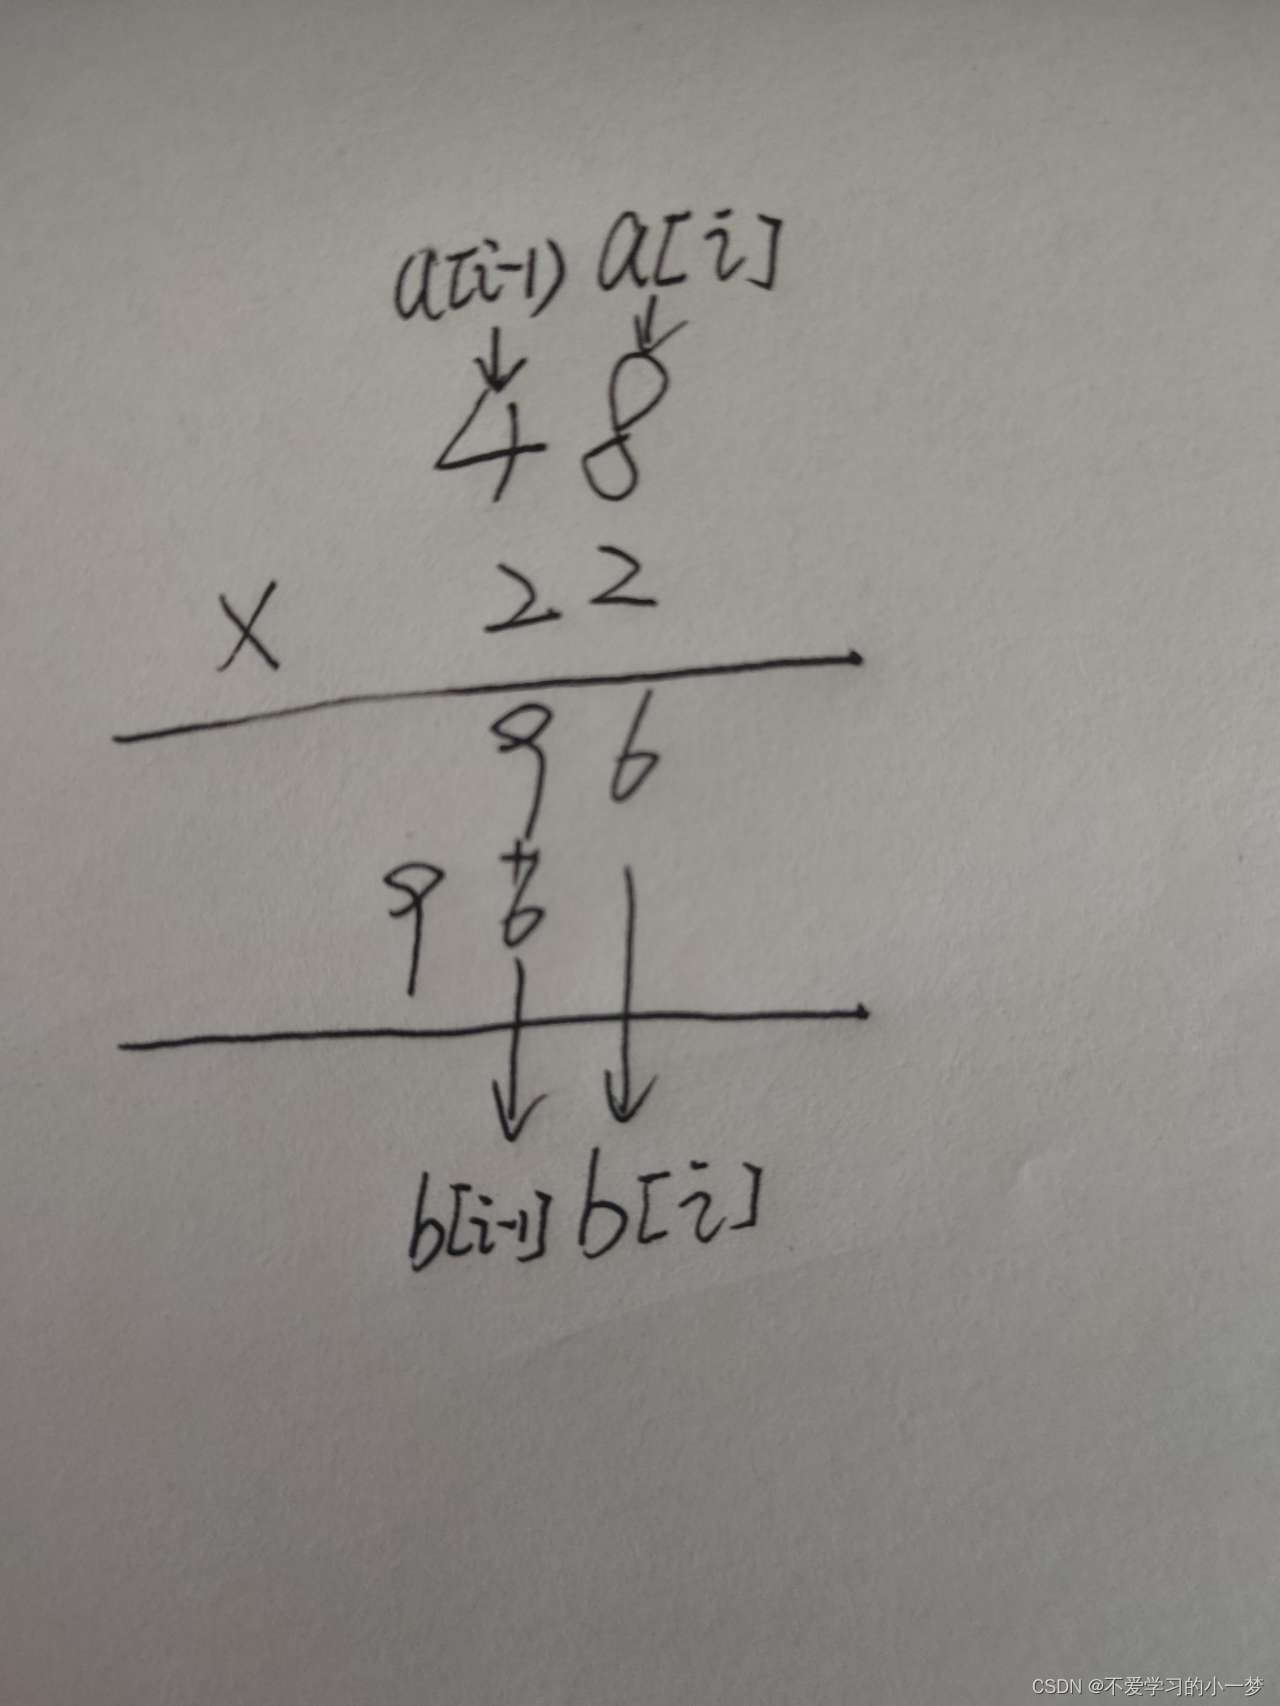 a[i-1) a[i]
4 8
× 2 2
9 6
+
9 6
b[i-1] b[i]
CSDN @不爱学习的小一梦